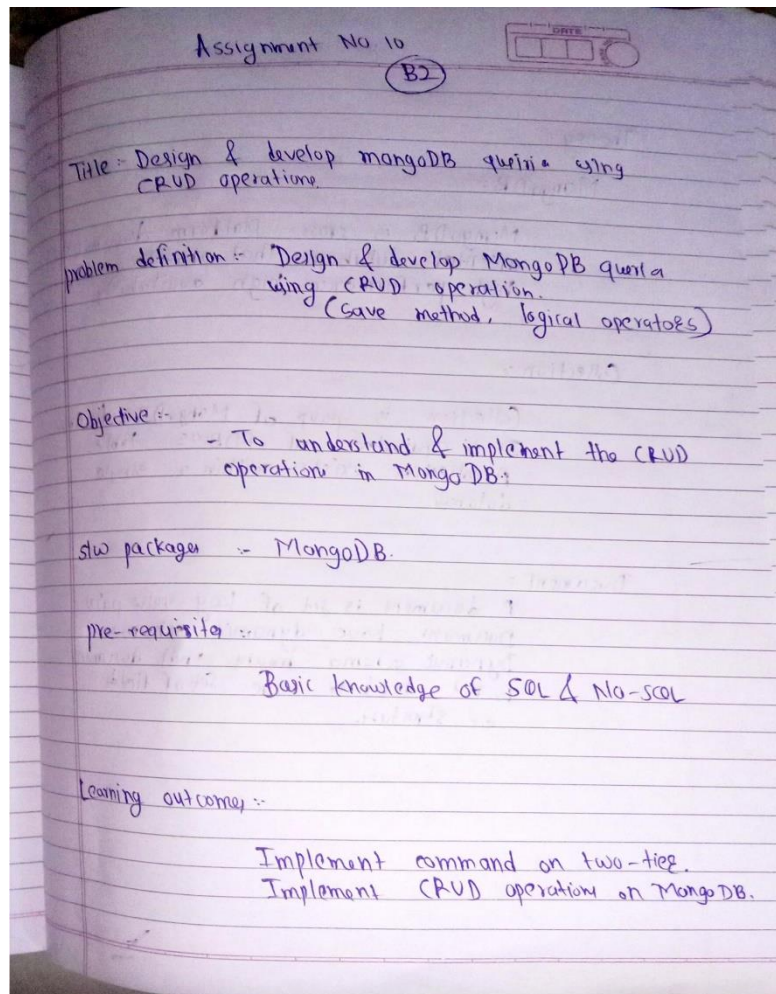 Assignment No. 10
DATE
B2
Title :- Design & develop mongoDB using
CRUD operations
problem definition :- Design & develop MongoDB
using CRUD operation.
(save method, logical operators)
Objective :-
- To understand & implement the CRUD
operations in MongoDB.
s/w packages :- MongoDB.
pre-requisites :-
Basic knowledge of SQL & No-SQL
Learning outcomes :-
Implement command on two-tier.
Implement CRUD operations on MongoDB.